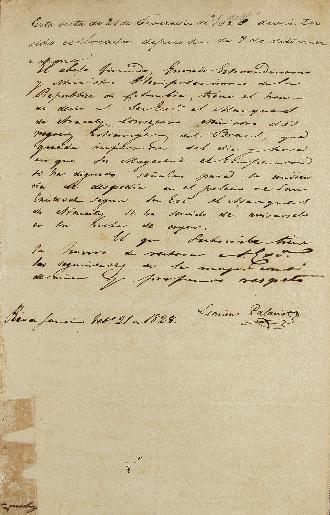 Esta nota de 21 de Fevereiro de 1828 deve ter
sido collocada depois da de 7 de
El abajo firmado Enviado Extraordinario
y Ministro Plenipotenciario de la
Republica de Colombia, tiene el honor
de decir al Sor Exmo. el Marquez
de Aracaty, Consejero Ministro de
Negocios Estrangeros del Brasil, que
queda impuesto del dia y hora
en que Su Magestad el Emperador
se ha dignado señalar para la audien
cia de despedida en el palacio de San
Cristoval segun Su Exa. el Marquez
de Aracaty se ha servido de avisarselo
en su nota de ayer.
El que subscribe tiene
la honra de reiterar a S. Exa.
las seguridades de su mayor consi
deracion y profundo respeto
Rio de Janeiro Feb. 21 de 1828.
Leandro Palacios